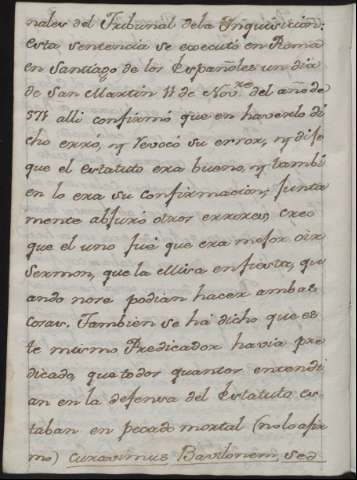 nales del Tribunal dela Inquisicion:
esta sentencia se executó en Roma
en Santiago de los Españoles un dia
de San Martin 11 de Nov.re del año de
571 alli confirmó que en haverlo di
cho erró, y revocó su error, y dijo
que el estatuto era bueno, y tambi
en lo era su confirmacion; Junta
mente abjuró otros errores, creo
que el uno fué que era mejor oir
Sermon, que la Missa en fiesta, qu
ando no se podian hacer ambas
cosas. Tambien se há dicho que es
te mismo Predicador havia pre
dicado, que todos quantos entendi
an en la defensa del Estatuto, es
taban en pecado mortal (no lo afir
mo) curavimus Bavilonem, sed